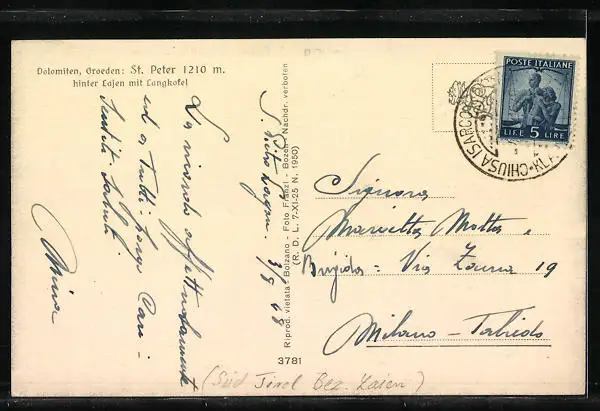 Dolomiten, Groeden: St. Peter 1210 m.
hinter Lajen mit Langkofel
La ricordo affettuosamente
ed a tutti Cari
saluti
S. Pietro
3/8 48
Riprod. vietata - Bolzano - Foto Franzl - Bozen - Nachdr. verboten
(R. D. L. 7-XI-25 N. 1950)
3781
POSTE ITALIANE
LIRE 5 LIRE
CHIUSA ISARCO
Signora
Marietta Motta
Via 19
Milano -
(Süd Tirol Bez. Laien)